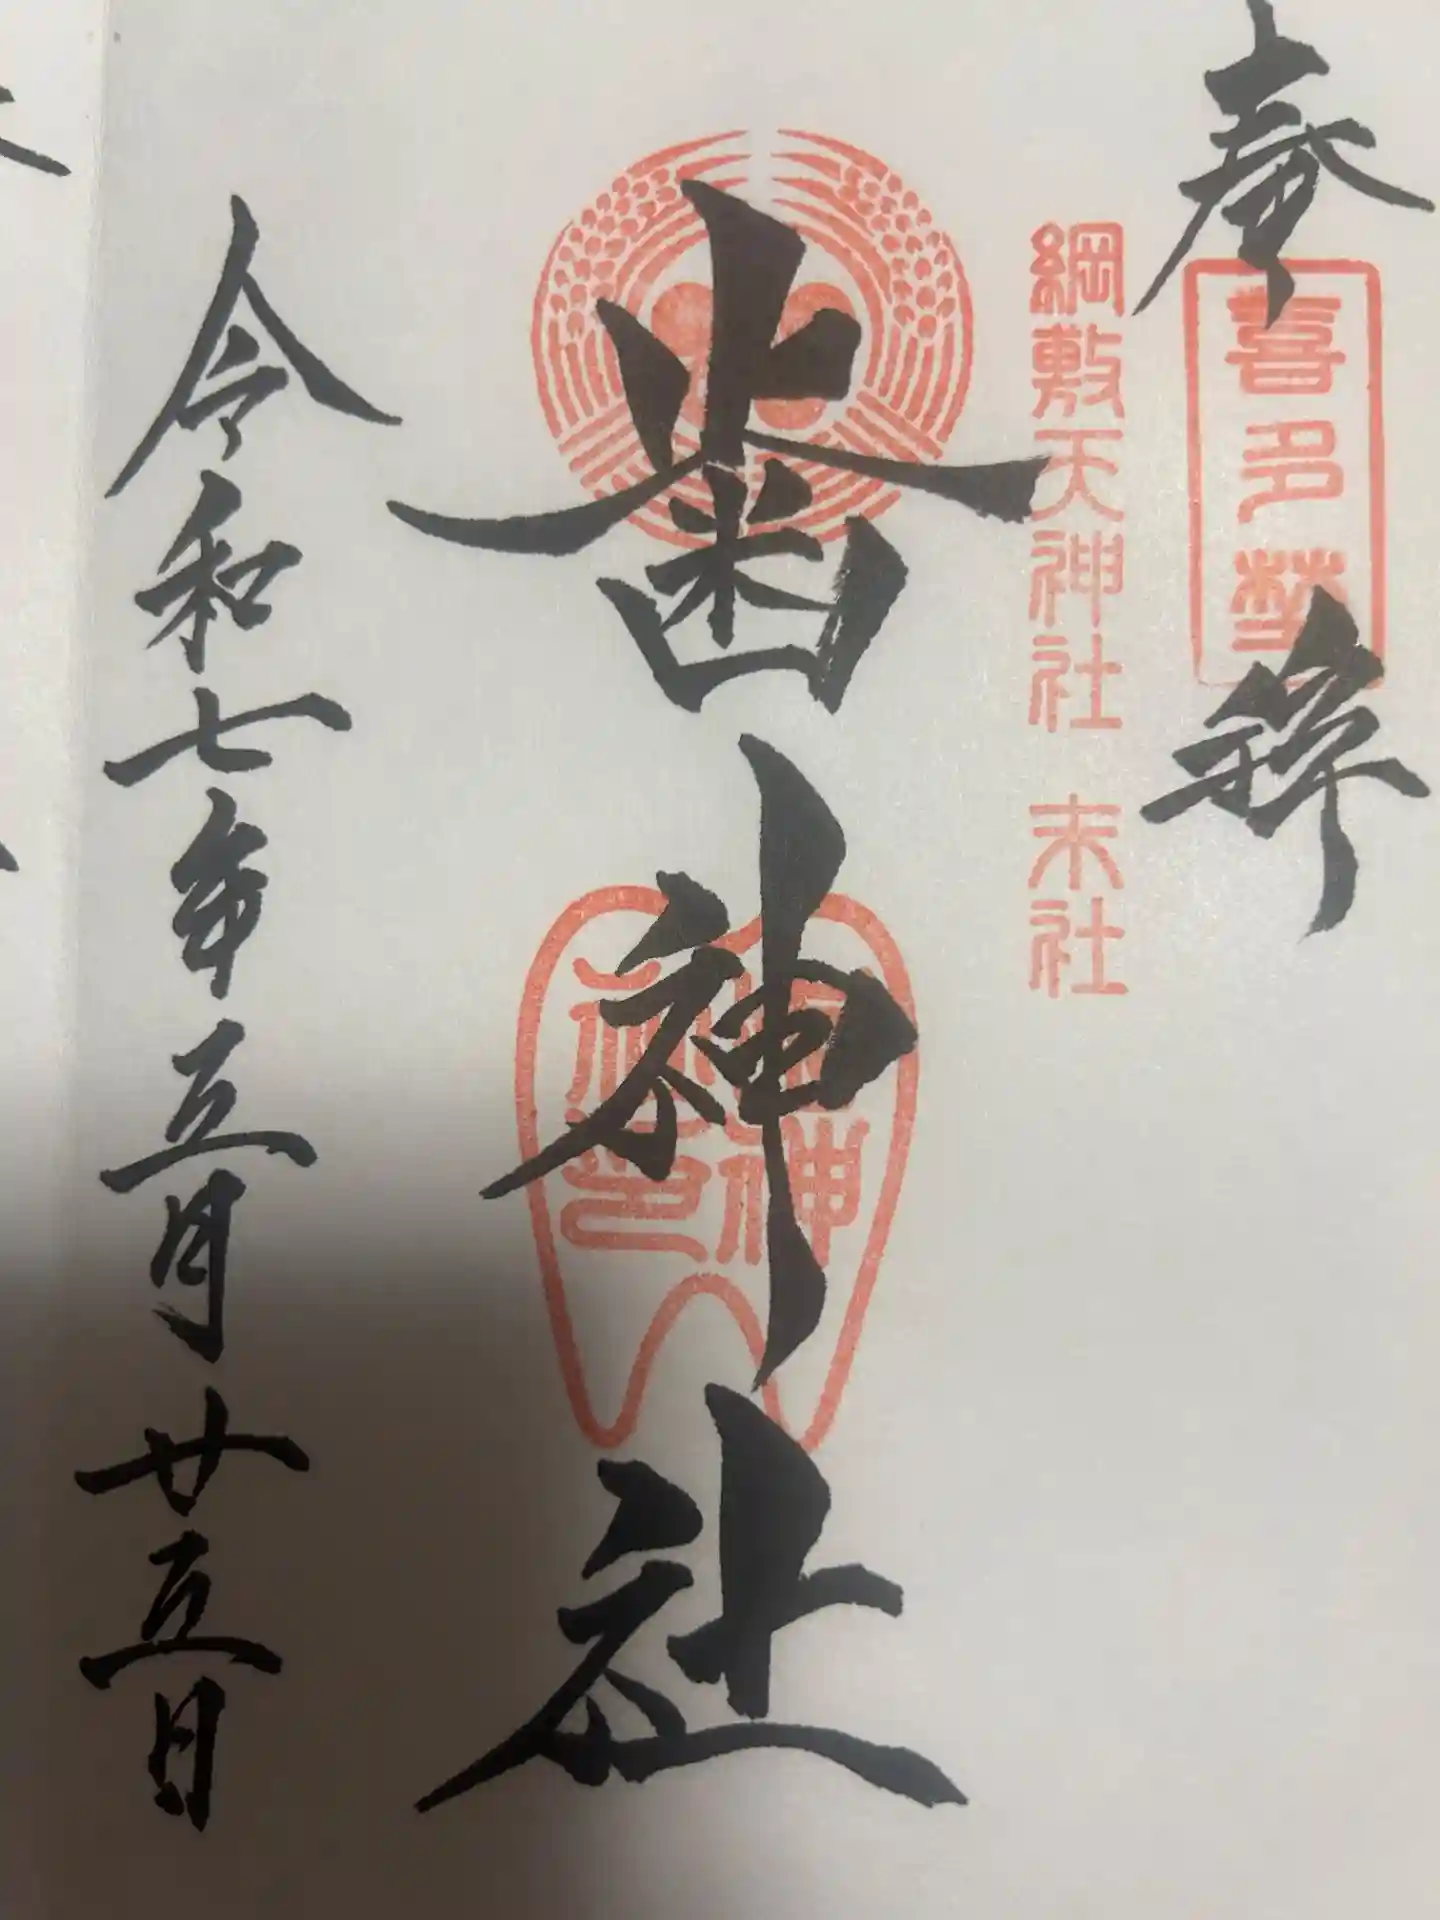 奉拝
喜多埜
綱敷天神社 末社
歯神社
歯神社印
令和七年五月廿五日